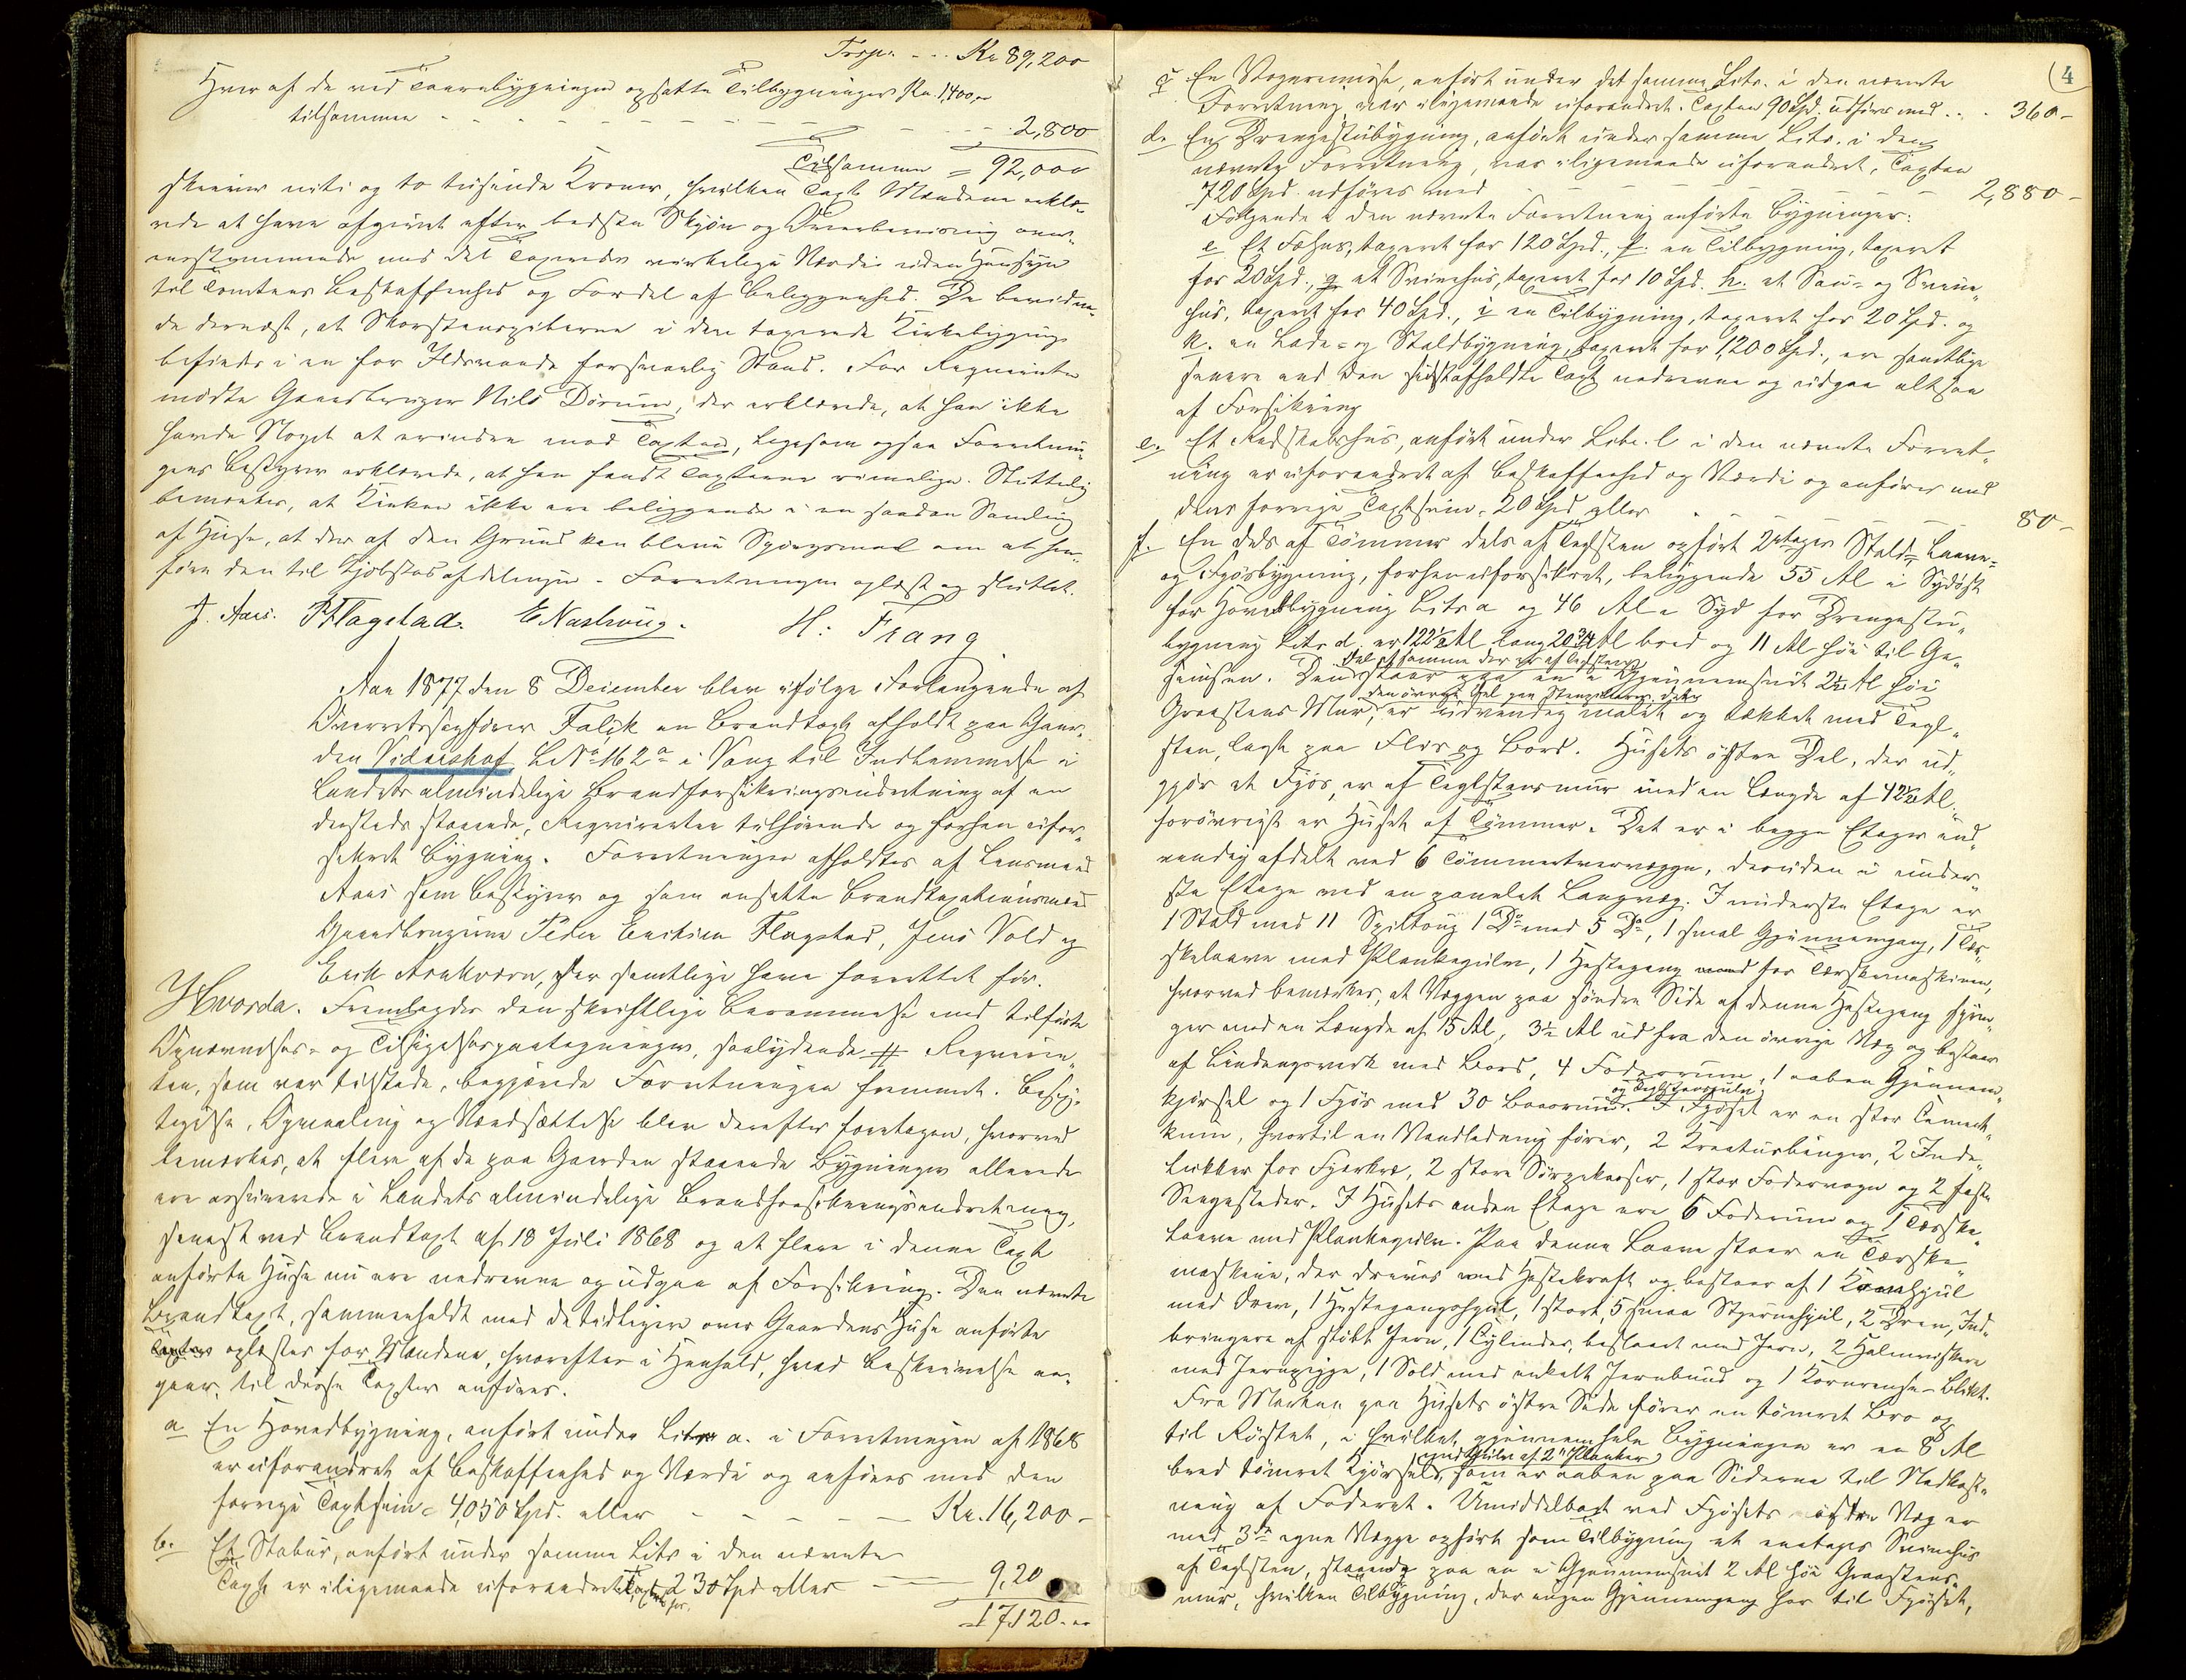 Trsp. - - - Kr 89,200
Hver af de ved Taarnbygningen opsatte Tilbygninger Kr. 1,400,
tilsammen - - - - 2,800
Tilsammen = 92,000
skriver niti og to tusinde Kroner, hvilken Taxt Mændene erklæ-
rede at have afgivet efter bedste Skjøn og Overbevisning over-
ensstemmende med det Taxeredes virkelige Værdi uden Hensyn
til Tomtens Beskaffenhed og Fordel af Beliggenhed. De bevidne-
de dernæst, at Skorstenspiberne i den taxerede Kirkebygning
befindes i en for Ildsvaade forsvarlig Stand. For Reqvirenten
mødte Gaardbruger Nils Dørum, der erklærede, at han ikke
havde Noget at erindre mod Taxten, ligesom ogsaa Forretnin-
gens Bestyrer erklærede, at han fandt Taxterne rimelige. Sluttelig
bemærkes, at Kirken ikke er beliggende i en saadan Samling
af Huse, at der af den Grund kan blive Spørgsmaal om at hen-
føre den til Kjøbstadafdelingen. Forretningen oplæst og sluttet.
J. Aars. P. Flagstad. E. Nashoug. H. Frang
Aar 1877 den 8 December blev ifølge Forlangende af
Overretssagfører Falck en Brandtaxt afholdt paa Gaar-
den Vidarshof L No 162 a i Vang til Indlemmelse i
Landets almindelige Brandforsikringsindretning af en
dersteds staaende, Reqvirenten tilhørende og forhen ufor-
sikret Bygning. Forretningen afholdtes af Lensmand
Aars som Bestyrer og som ansatte Brandtaxationsmænd
Gaardbrugerne Peder Eriksen Flagstad, Jens Vold og
Erik Arnkværn, der samtlige have forrettet før.
Hvorda. Fremlagdes den skriftlige Berammelse med tilførte
Opnævnelses- og Tilsigelsespaategninger, saalydende # Reqviren-
ten, som var tilstede, begjærede Forretningen fremmet. Besig-
tigelse, Opmaaling og Værdsættelse blev derefter foretagen, hvorved
bemærkes, at flere af de paa Gaarden staaende Bygninger allerede
ere assurerede i Landets almindelige Brandforsikringsindretning,
senest ved Brandtaxt af 18 Juli 1868 og at flere i denne Taxt
anførte Huse nu ere nedrevne og udgaa af Forsikring. Den nævnte
Brandtaxt, sammenholdt med de tidligere over Gaardens Huse anførte
Taxter oplæstes for Mændene, hvorefter i Henhold, hvad Beskrivelse an-
gaar, til disse Taxter anføres.
a En Hovedbygning, anført under Litr a. i Forretningen af 1868
er uforandret af Beskaffenhed og Værdi og anføres med den
forrige Taxtsum = 4,050 Spd. eller - - - Kr. 16,200 -
b. Et Stabur, anført under samme Litr i den nævnte
Taxt er iligemaade uforandret Taxt 230 Spd eller 9,20
17,120. -
4
c En Vognremisse, anført under det samme Litr. i den nævnte
Forretning, var iligemaade uforandret. Taxten 90 Spd. udføres med . . . 360 -
d. En Drengestubygning, anført under samme Litr. i den
nævnte Forretning, var iligemaade uforandret, Taxten
720 Spd. udføres med - - - - 2,880 -
Følgende i den nævnte Forretning anførte Bygninger:
e Et Fæhus, taxeret for 120 Spd., f. en Tilbygning, taxeret
for 20 Spd., g et Svinehus, taxeret for 10 Spd. h. et Sau- og Svine-
hus, taxeret for 40 Spd., i en Tilbygning, taxeret for 20 Spd. og
k. en Lade- og Staldbygning, taxeret for 1,200 Spd., ere samtlige
senere end den sidstafholdte Taxt nedrevne og udgaa altsaa
af Forsikring
e. Et Redskabshus, anført under Litr. l i den nævnte Forret-
ning er uforandret af Beskaffenhed og Værdi og anføres med
dens forrige Taxtsum, 20 Spd eller - - - 80 -
f. En dels af Tømmer dels af Teglsten opført 2 etages Stald-, Laave-
og Fjøsbygning, forhen uforsikret, beliggende 55 Al i Sydøst
for Hovedbygning Litr a og 46 Al i Syd for Drengestu-
bygning Litr d, er 122½ Al lang 20¾ Al bred og 11 Al høi til Ge-
Del af samme der er af Teglsten
simsen. Den staar paa en i Gjennemsnit 2½ Al høi
den øvrige Del paa Stenpillarer, det
Graastens Mur, er udvendig malet og tækket med Tegl-
sten, lagt paa Flis og Bord. Husets østre Del, der ud-
gjør et Fjøs, er af Teglstensmur med en Længde af 42½ Al.
forøvrigt er Huset af Tømmer. Det er i begge Etager ind-
vendig afdelt ved 6 Tømmertvervægge, desuden i under-
ste Etage ved en panelet Langvæg. I underste Etage er
1 Stald med 11 Spiltoug 1 Do med 5 Do, 1 smal Gjennemgang, 1 Tær-
skelaave med Plankegulv, 1 Hestegang for Tærskemaskinen,
hvorved bemærkes, at Væggen paa søndre Side af denne Hestegang sprin-
ger med en Længde af 15 Al, 3½ Al ud fra den øvrige Væg og bestaar
af Bindingsverk med Bord, 4 Foderrum, 1 aaben Gjennem-
og Teglstensgulv
kjørsel og 1 Fjøs med 30 Baasrum. I Fjøset er en stor Cement-
kum, hvortil en Vandledning fører, 2 Kreaturbinger, 2 Inde-
lukker for Fjærkræ, 2 store Sørpekasser, 1 stor Fodervogn og 2 faste
Sengesteder. I Husets anden Etage ere 6 Foderum og 1 Tærske-
laave med Plankegulv. Paa denne Laave staar en Tærske-
maskine, der drives med Hestekraft og bestaar af 1 Kamhjul
med Drev, 1 Hestegangshjul, 1 stort, 5 smaa Stjernehjul, 2 Drev, Ind-
bringere af støbt Jern, 1 Cylinder, beslaaet med Jern, 2 Halmviskere
med Jernpigge, 1 Sold med enkelt Jernbund og 1 Kornrense-
Fra Marken paa Husets østre Side fører en tømret Bro op
til Røstet, i hvilket, gjennem hele Bygningen er en 8 Al
med Gulv af 2" Planker
bred tømret Kjørsel, som er aaben paa Siderne til Nedkast-
ning af Foderet. Umiddelbart ved Fjøsets østre Væg er
med 3de egne Vægge opført som Tilbygning et enetages Svinehus
af Teglsten, staaende paa en i Gjennemsnit 2 Al høi Graastens-
mur, hvilken Tilbygning, der ingen Gjennemgang har til Fjøset,